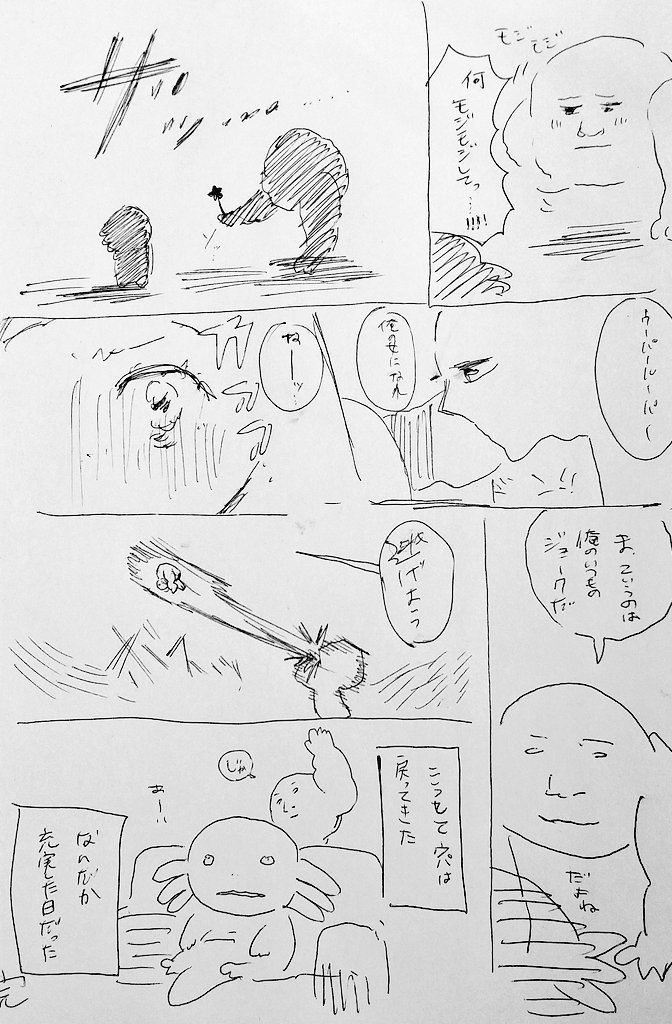 モジモジ
何
モジモジしてっ…!!!!
ザッ
ウーパールーパー
俺母になれ
ドン!!
ねーッ…
逃げよう
ま、というのは
俺のいつもの
ジョークだ
だよね
こうして穴は
戻ってきた
じゃ
あー…
なんだか
充実した日だった
完